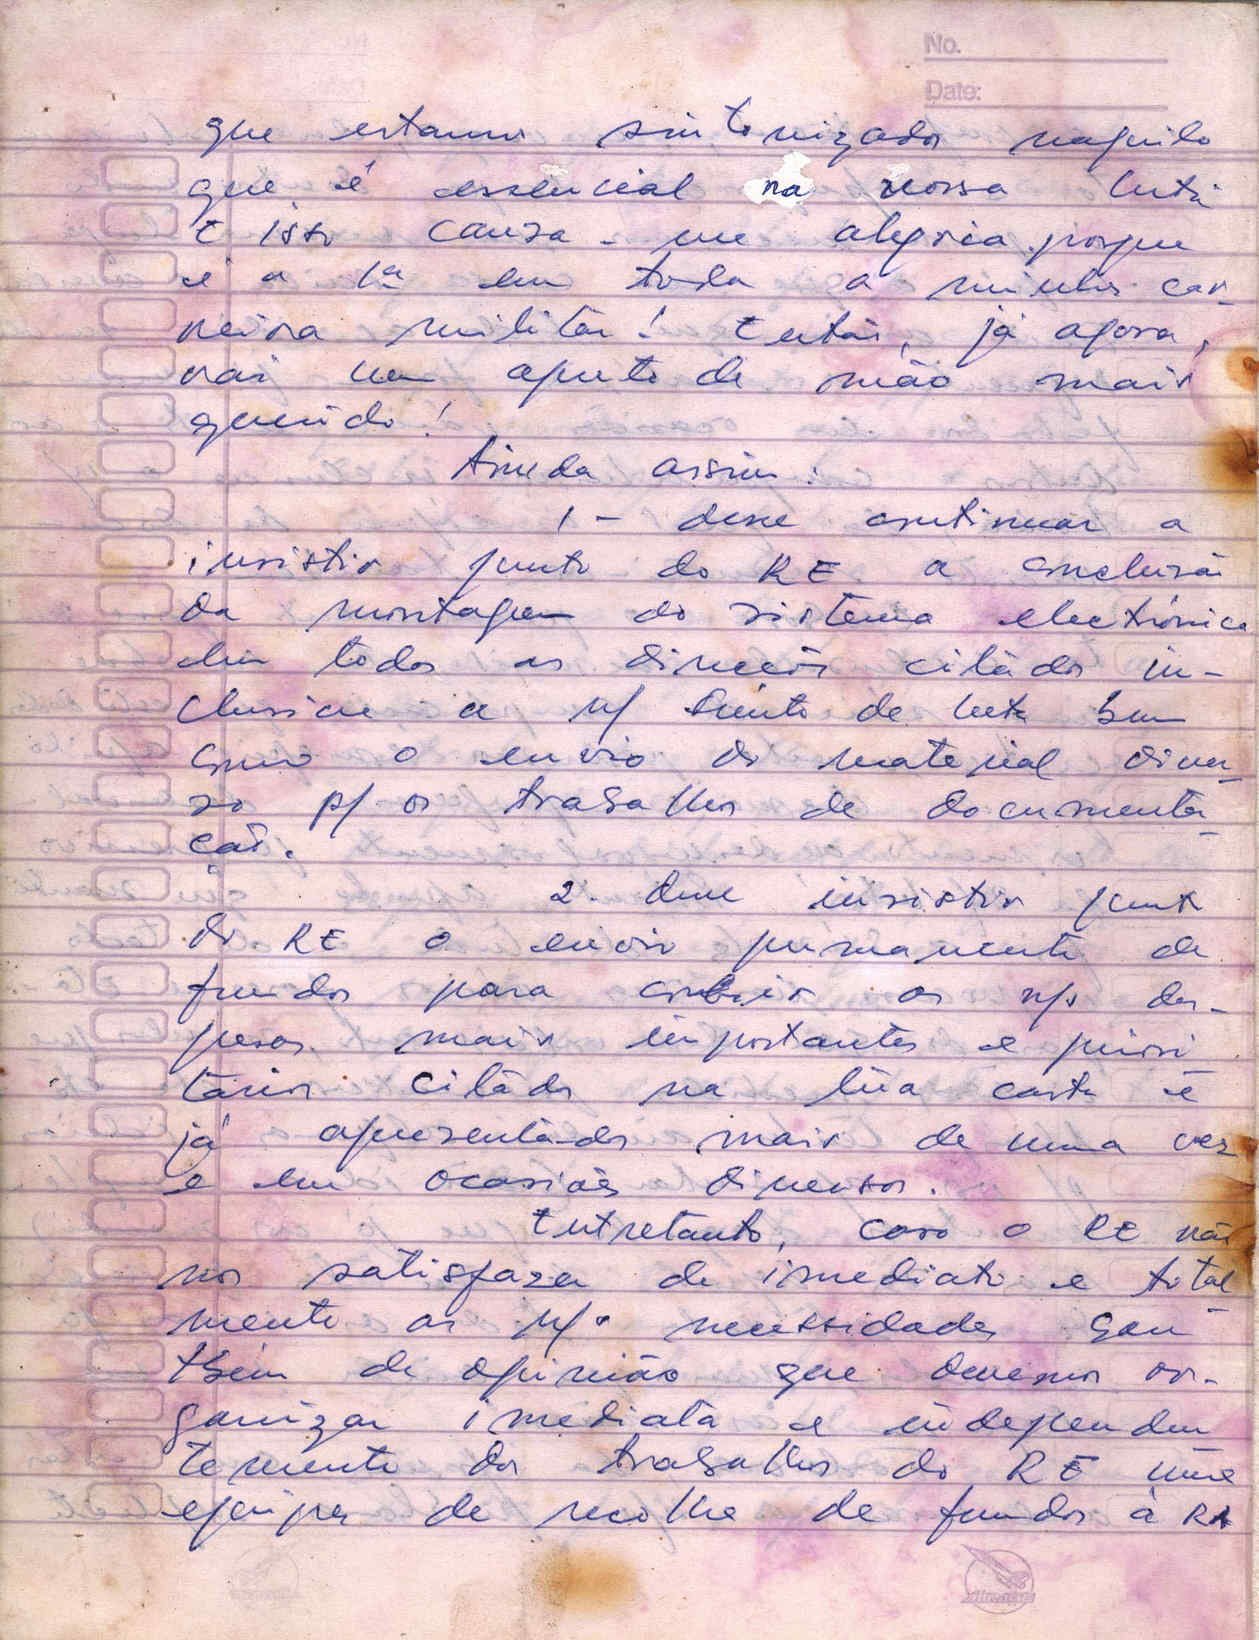 No.
Date:
que estamos sintonizados naquilo
que é essencial na nossa luta
e isso causa-me alegria porque
é a 1ª em toda a minha car-
reira militar! Então, já agora,
vai um aperto de mão mais
querido!
Ainda assim:
1- deve continuar a
insistir junto do RE a conclusão
da montagem do sistema electrónico
em todos as direcções citados in-
clusive a n/ frente de luta bem
como o envio do material diver-
so p/ os trabalhos de documenta-
ção.
2. deve insistir junto
do RE o envio permanente de
fundos para cobrir as n/s des-
pesas mais importantes e priori
tárias citados na tua carta e
já apresentados mais de uma vez
e em ocasiões diversos.
Entretanto, caso o RE não
nos satisfazer de imediato e total-
mente as n/s necessidades sou
tbém de opinião que devemos or-
ganizar imediata e independen
temente dos trabalhos do RE uma
equipa de recolha de fundos à